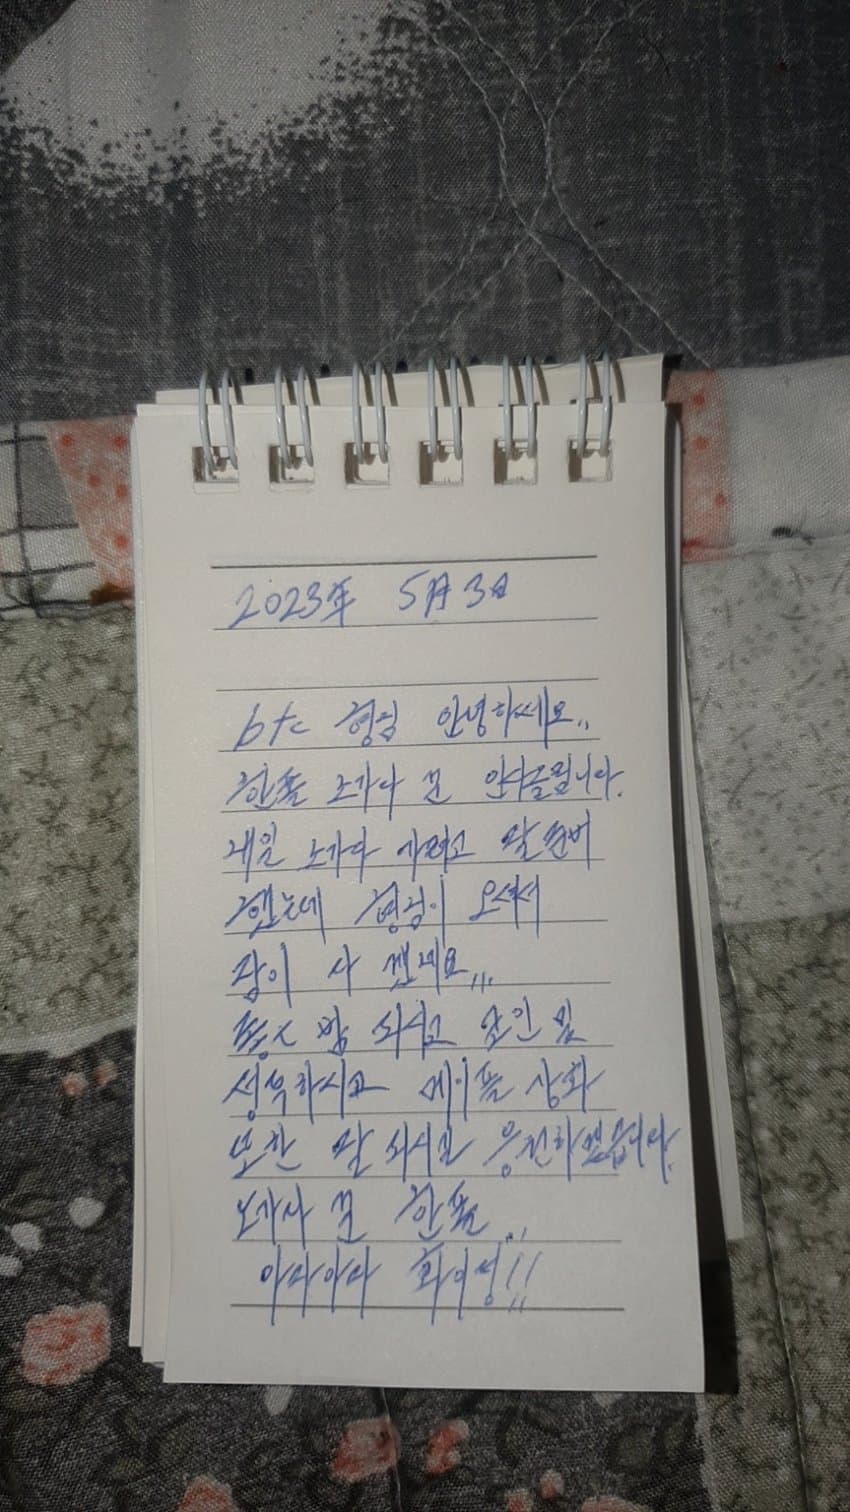 2023年 5月 3日
btc 형님 안녕하세요..
한폴 노가다 꾼 인사드립니다.
내일 노가다 가려고 잘 준비
했는데 형님이 오셔서
잠이 다 깼네요,,,
방송 잘 되시고 코인 및
성투하시고 메이플 상황
또한 잘 되시길 응원하겠습니다.
노가다 꾼 한폴..
아자아자 화이팅!!